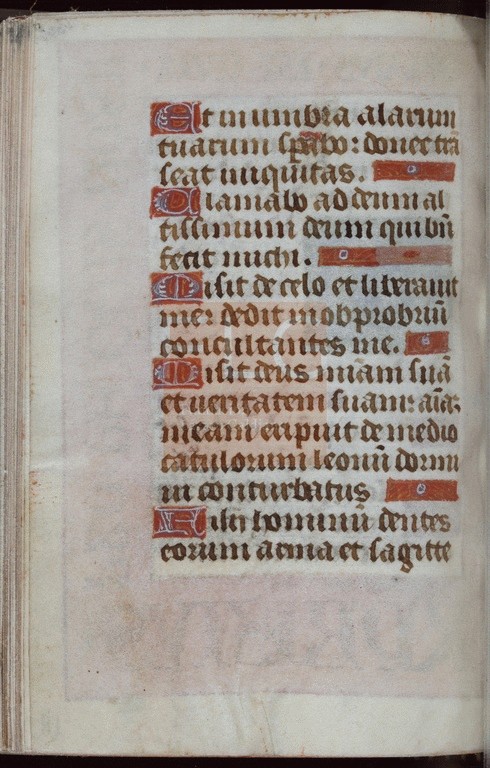 Et in umbra alarum
tuarum sp̄abo: donec trā
seat iniqūitas.
Clamabo ad deum al
tissimum deum qui bn̄
fecit michi.
Misit de celo et liberauit
me: dedit in obprobriū
conculcantes me.
Misit deus mīam suā
et ueritatem suam: aīaȝ
meam eripuit de medio
catulorum leonū dormi
ui conturbatus
Filii hominū dentes
eorum arma et sagitte